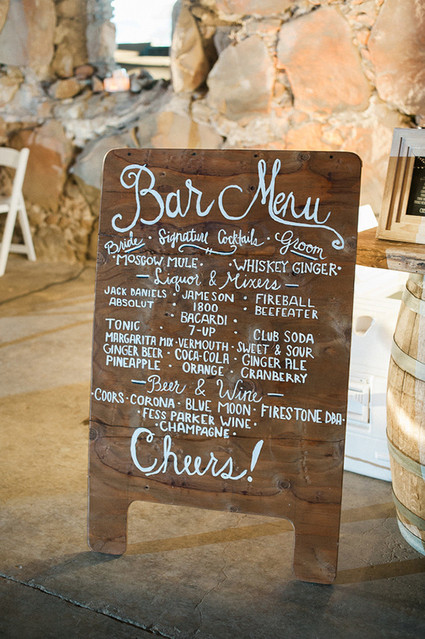 Bar Menu
Bride · Signature Cocktails · Groom
·MOSCOW MULE· WHISKEY GINGER·
Liquor & Mixers
JACK DANIELS · JAMESON · FIREBALL
ABSOLUT · 1800 · BEEFEATER
BACARDI
TONIC · 7-UP · CLUB SODA
MARGARITA MIX · VERMOUTH · SWEET & SOUR
GINGER BEER · COCA-COLA · GINGER ALE
PINEAPPLE · ORANGE · CRANBERRY
Beer & Wine
·COORS · CORONA · BLUE MOON · FIRESTONE DBA·
·FESS PARKER WINE·
·CHAMPAGNE·
Cheers!